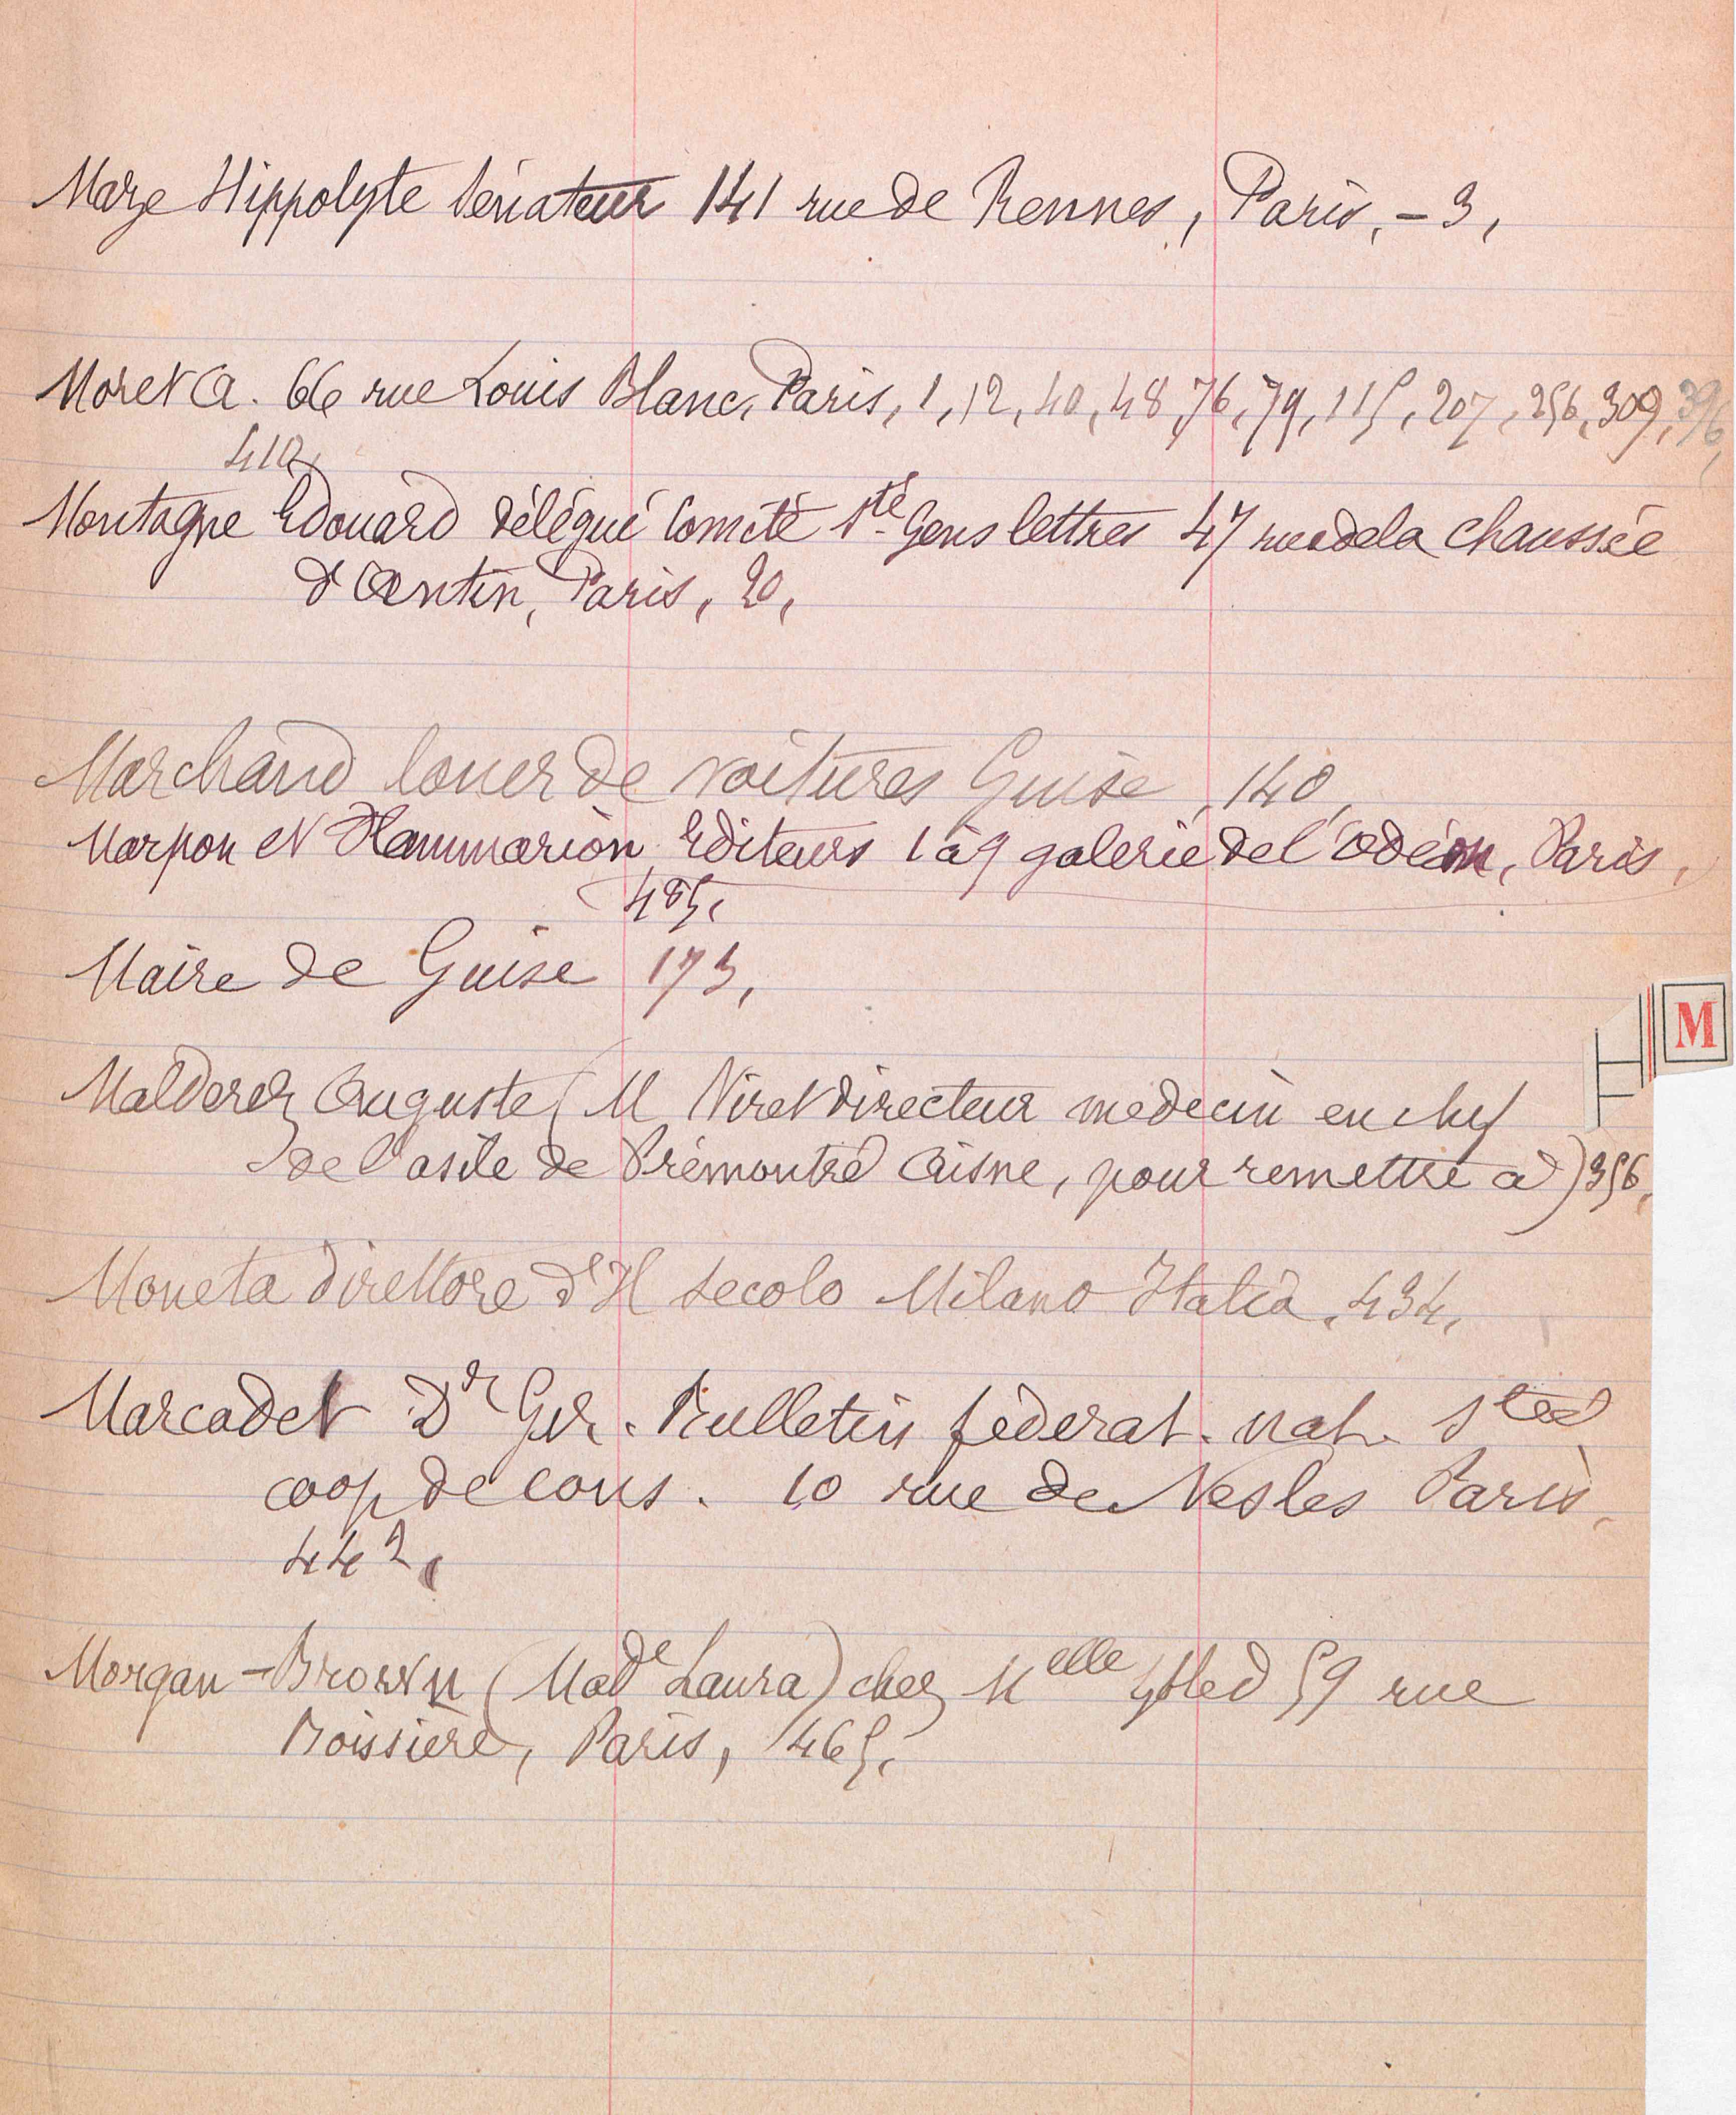 Maze Hippolyte Sénateur 141 rue de Rennes, Paris, - 3,
Moret A. 66 rue Louis Blanc, Paris, 1, 12, 40, 48, 76, 79, 115, 207, 256, 309, 396,
410,
Montagne Edouard délégué Comité Sté Gens lettres 47 rue de la chaussée
d'Antin, Paris, 20,
Marchand louer de voitures Guise, 140,
Marpon et Flammarion Editeurs 1 à 9 galerie de l'Odéon, Paris,
485,
Maire de Guise 173,
M
Malderez Auguste (M Viret directeur médecin en chef
de l'asile de Prémontré Aisne, pour remettre à) 356,
Moneta direttore d'Il Secolo Milano Italia, 434,
Marcadet Dr Gér. Bulletin fédérat. nat. Stés
coop de cons. 10 rue de Nesles Paris,
442,
Morgan-Brown (Made Laura) chez Melle 59 rue
Boissière, Paris, 465,